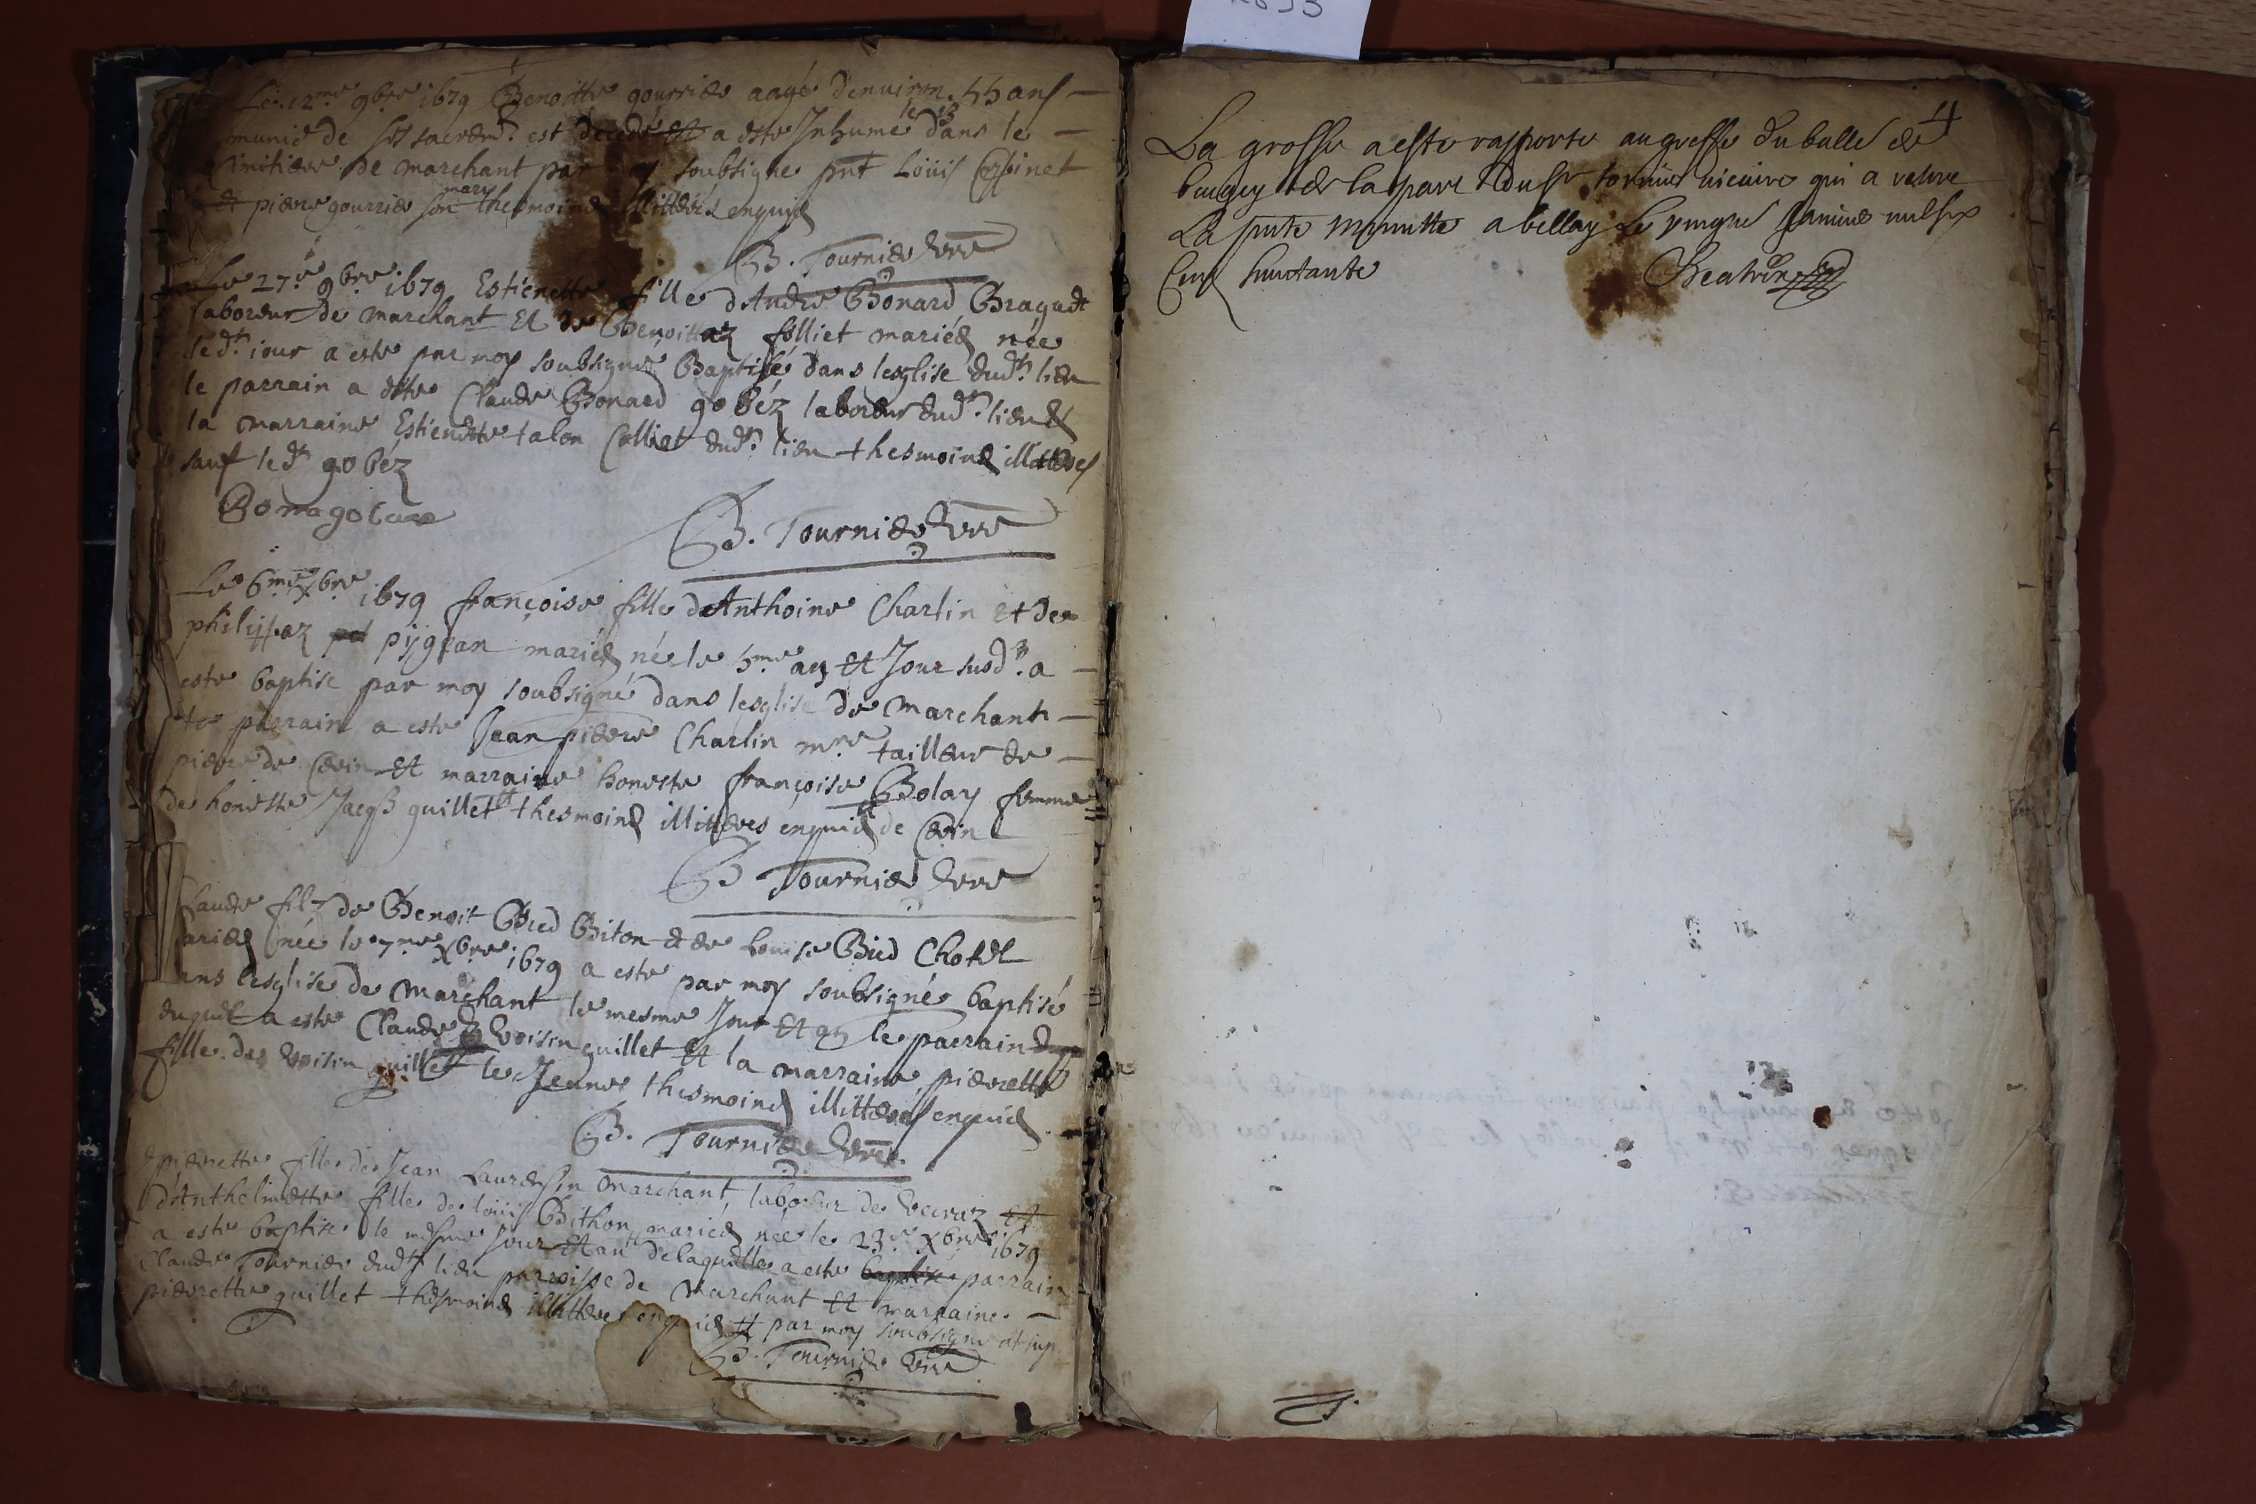 Le 12.me 9bre 1679 Benoitte gourrier aagé denuiron 55 ans
munie de ses sacrem.ts est decedé et a este Inhume le 13 dans le
cimitiere de marchant par moy soubsigne pnt Louis Cosinet
et pierre gourrier son mary thesmoins illitterés enquis
B. Tournier vire
Le 27.e 9bre 1679 Estienette fille d'Andre Bonard Braguet
laboreur de marchant Et de Benoittaz folliet mariés née
led.t iour a este par moy soubsigné Baptisé dans leglise dud.t lieu
le parrain a este Claude Bonard gobéz laboreur dud.t lieu et
la marraine Estienette talon Colliet dud.t lieu thesmoins illitterés
sauf led.t gobéz
Bonnagobéz
B. Tournier vire
Le 6.me Xbre 1679 françoise fille d'Anthoine Charlin et de
philippaz pijgean mariés née le 5.me an et Jour susd.t a
este baptise par moy soubsigné dans lesglise de marchant
le parrain a este Jean pierre Charlin m.re tailleur de
pierre de Cerin et marraine honeste françoise Bolay femme
de honeste Jacqs guillet thesmoins illitteres enquis de Cerin
B Tournier vire
Claude filz de Benoit Bied Biton et de Louise Bied Chotel
mariés née le 7.me Xbre 1679 a este par moy soubsigné baptisé
dans lesglise de Marchant le mesme Jour et an le parrain
duquel a este Claude Voisin guillet et la marraine pierrette
fille des Voisin guillet le Jeune thesmoins illitteres enquis
B. Tournier vire
pierrette fille de Jean Laurensin marchant, laboreur de vecraz et
d'Anthelmette fille de Louis Bithon mariés née le 23.e Xbre 1679
a este baptise le mesme Jour et an delaquelle a este parrain
Claude Tournier dud.t lieu parroisse de Marchant et marraine
pierrette guillet thesmoins illitteres enquis et par moy soubsigne
B. Tournier vire
4
La grosse a este rapporte au greffe du balle de
bugey de la part du sr tornier vicaire qui a retire
La pnte minutte a bellay Le vingne Janvier mil six
Cens huictante